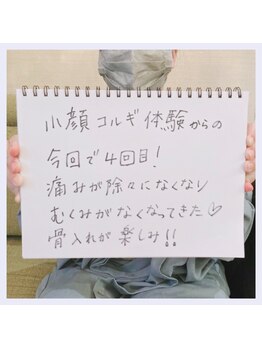 小顔コルギ体験からの
今回で4回目!
痛みが除々になくなり
むくみがなくなってきた♡
骨入れが楽しみ!!